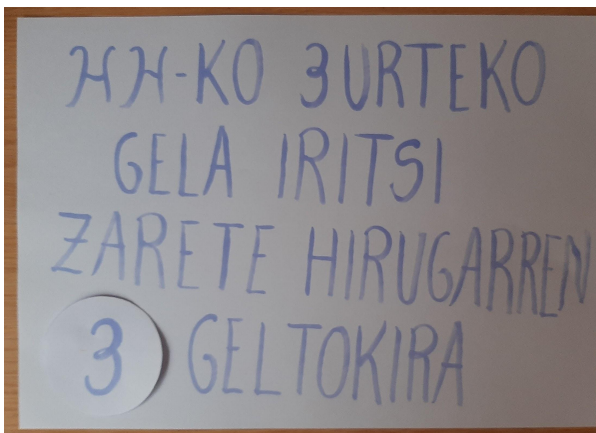 HH-KO 3URTEKO
GELA IRITSI
ZARETE HIRUGARREN
3 GELTOKIRA